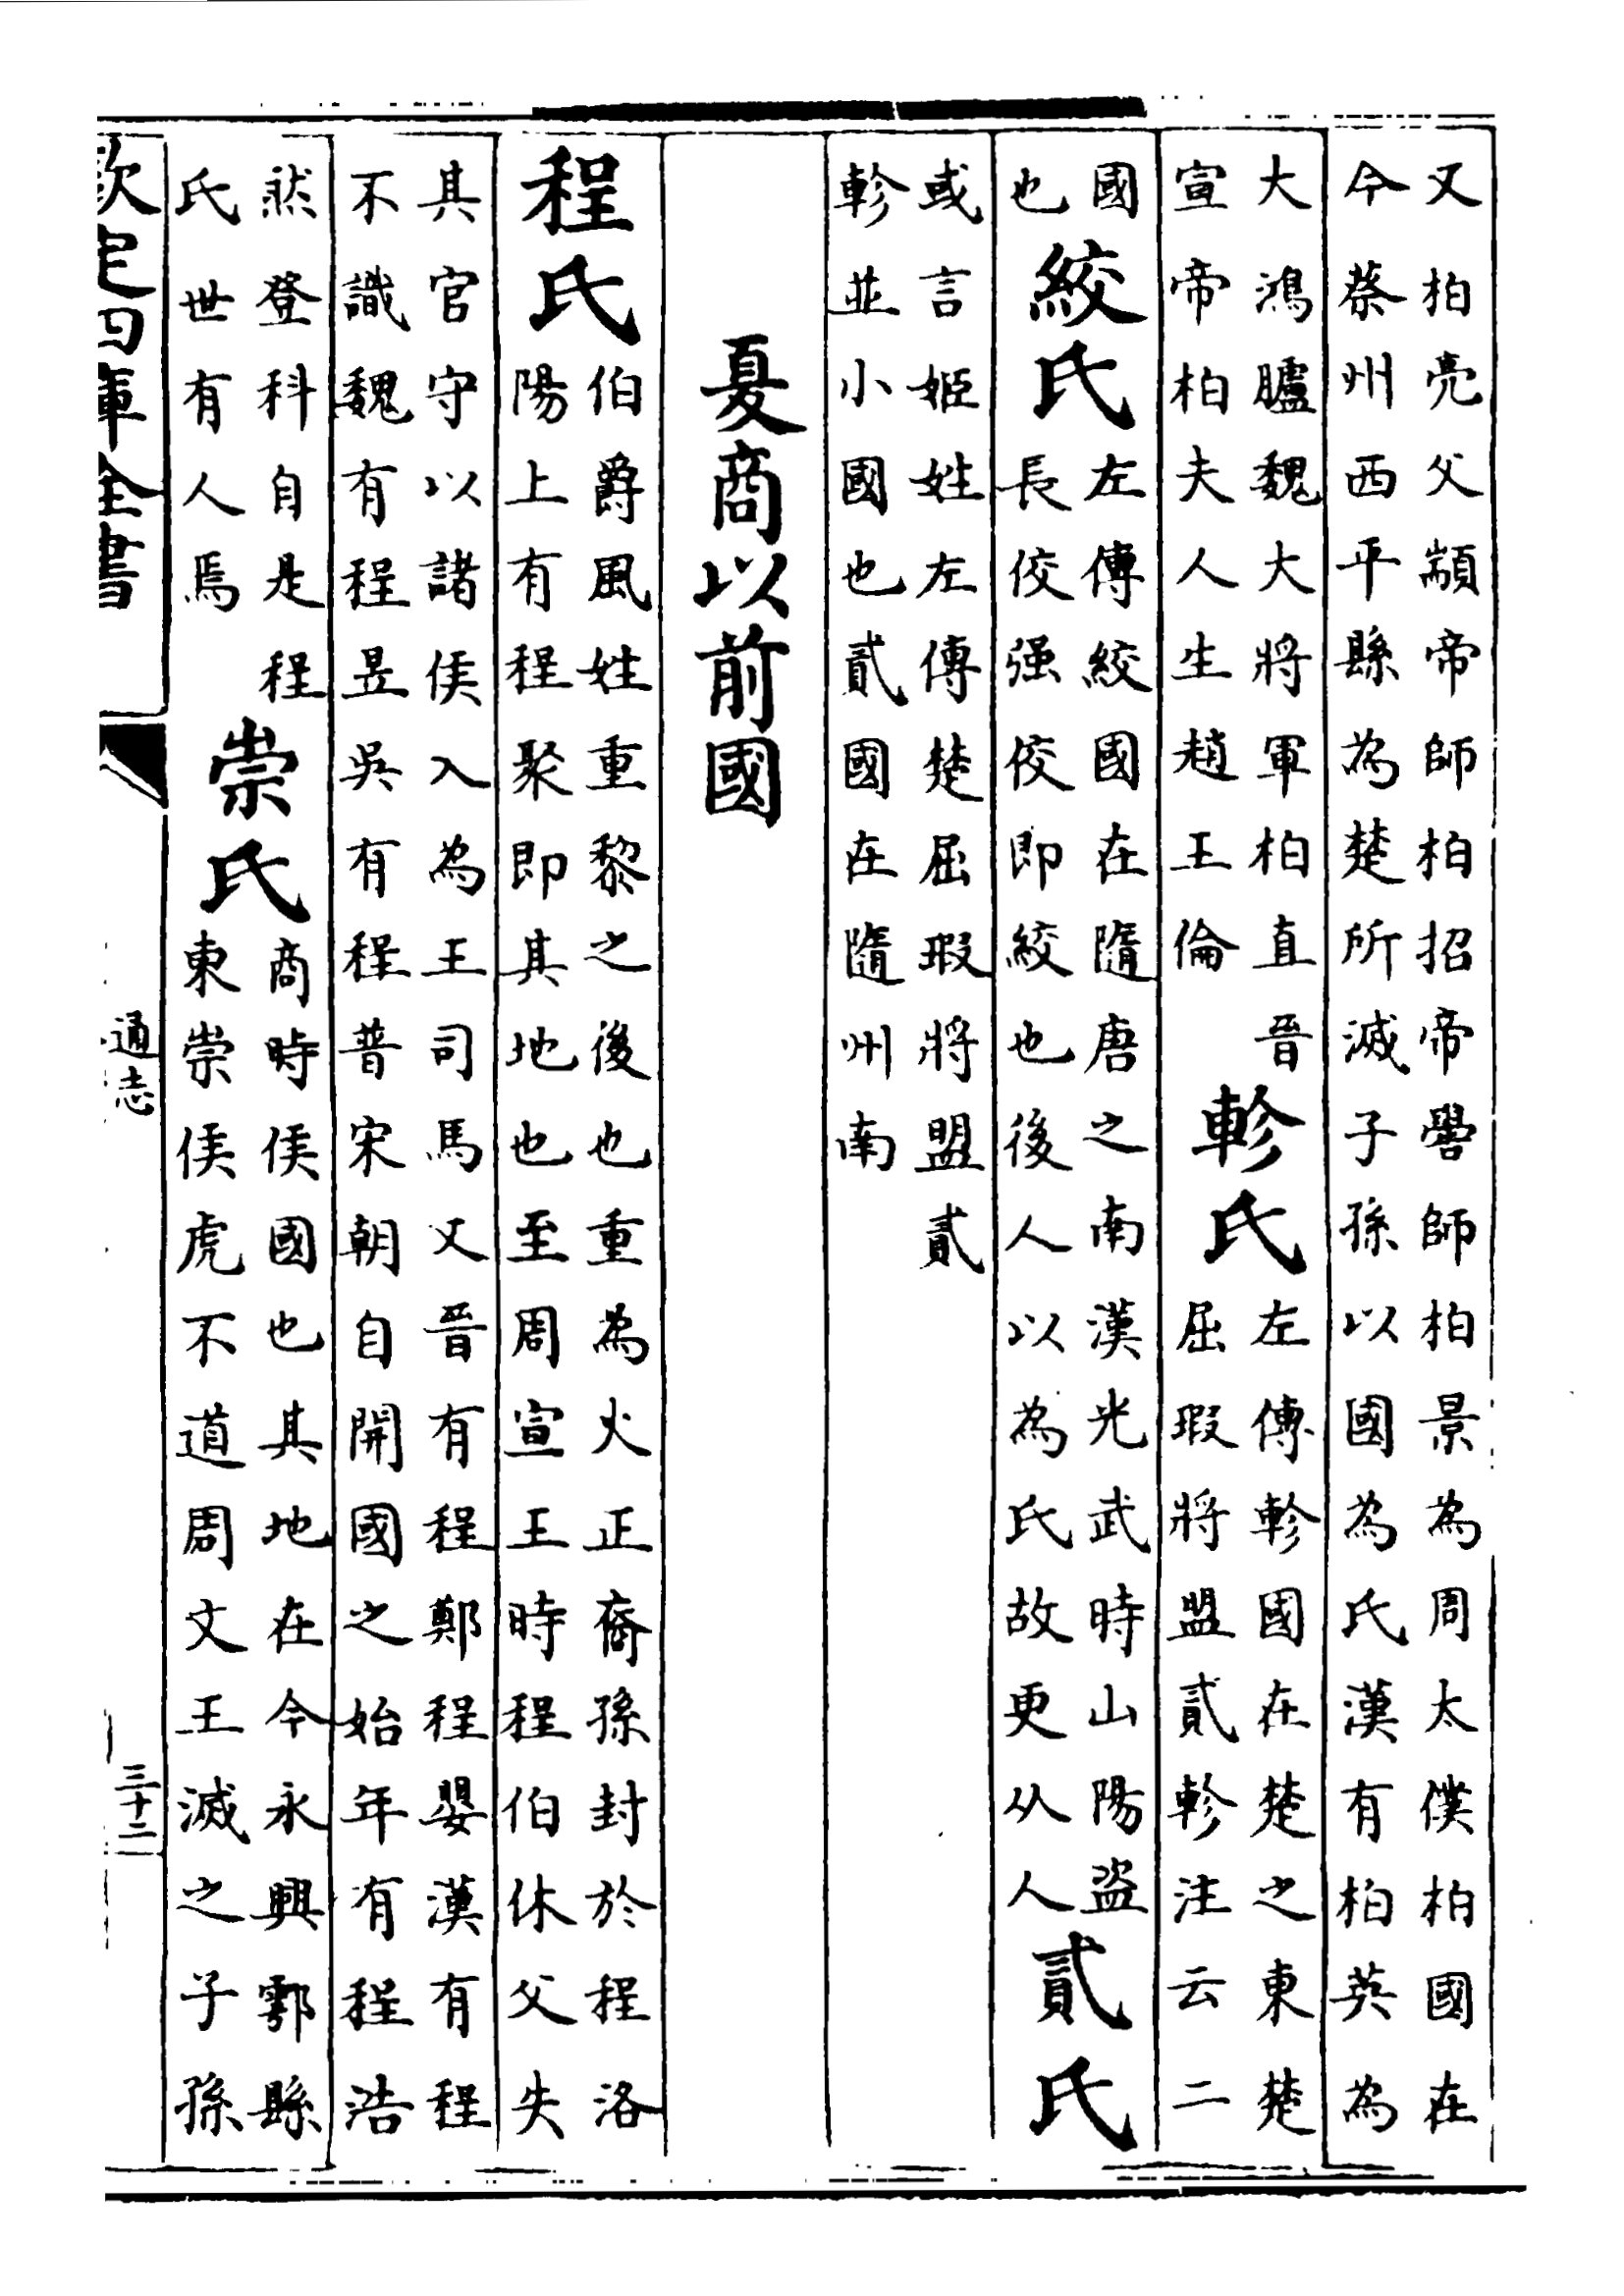 又柏亮父顓帝師柏招帝嚳師柏景為周太僕柏國在
今蔡州西平縣為楚所滅子孫以國為氏漢有柏英為
大鴻臚魏大將軍柏直晉
宣帝柏夫人生趙王倫
軫氏
左傳軫國在楚之東楚
屈瑕將盟貳軫注云二
國
也
絞氏
左傳絞國在隨唐之南漢光武時山陽盜
長佼强佼即絞也後人以為氏故更从人
貳氏
或言姬姓左傳楚屈瑕將盟貳
軫並小國也貳國在隨州南
夏商以前國
程氏
伯爵風姓重黎之後也重為火正裔孫封於程洛
陽上有程聚即其地也至周宣王時程伯休父失
其官守以諸侯入為王司馬又晉有程鄭程嬰漢有程
不識魏有程昱吳有程普宋朝自開國之始年有程浩
然登科自是程
氏世有人焉
崇氏
商時侯國也其地在今永興鄠縣
東崇侯虎不道周文王滅之子孫
欽定四庫全書
通志
三十二